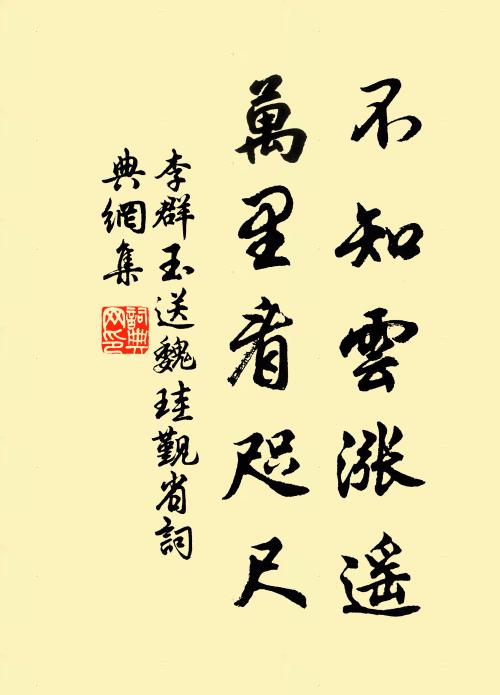 不知雲漲遥
萬里看咫尺
李群玉送魏珪覲省詞
典網集
詞典
网印